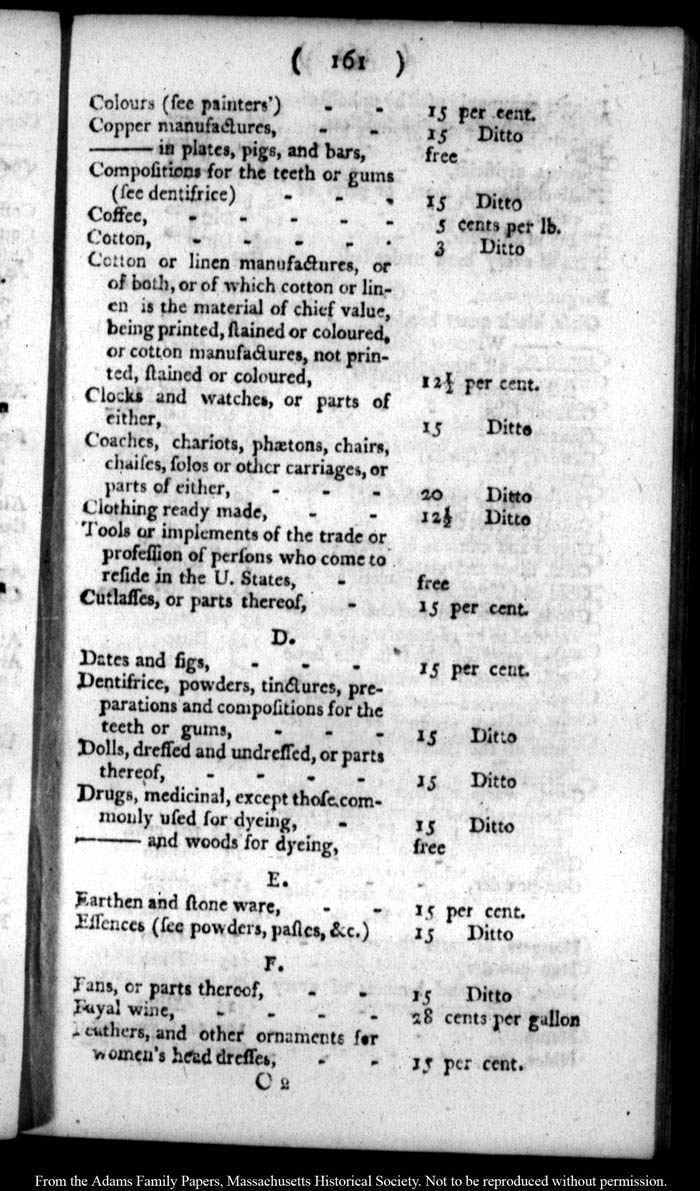 ( 161 )
Colours (ſee painters') - - 15 per cent.
Copper manufactures, - - 15 Ditto
——— in plates, pigs, and bars, free
Compoſitions for the teeth or gums
(ſee dentifrice) - - - 15 Ditto
Coffee, - - - - - 5 cents per lb.
Cotton, - - - - - 3 Ditto
Cotton or linen manufactures, or
of both, or of which cotton or lin-
en is the material of chief value,
being printed, ſtained or coloured,
or cotton manufactures, not prin-
ted, ſtained or coloured, 12½ per cent.
Clocks and watches, or parts of
either, 15 Ditto
Coaches, chariots, phætons, chairs,
chaiſes, ſolos or other carriages, or
parts of either, - - - 20 Ditto
Clothing ready made, - - 12½ Ditto
Tools or implements of the trade or
profeſſion of perſons who come to
reſide in the U. States, - free
Cutlaſſes, or parts thereof, - 15 per cent.
D.
Dates and figs, - - - 15 per cent.
Dentifrice, powders, tinctures, pre-
parations and compoſitions for the
teeth or gums, - - - 15 Ditto
Dolls, dreſſed and undreſſed, or parts
thereof, - - - - 15 Ditto
Drugs, medicinal, except thoſe com-
monly uſed for dyeing, - 15 Ditto
——— and woods for dyeing, free
E.
Earthen and ſtone ware, - - 15 per cent.
Eſſences (ſee powders, paſtes, &c.) 15 Ditto
F.
Fans, or parts thereof, - - 15 Ditto
Fayal wine, - - - - 28 cents per gallon
Feathers, and other ornaments for
women's head dreſſes, - - 15 per cent.
O 2
From the Adams Family Papers, Massachusetts Historical Society. Not to be reproduced without permission.